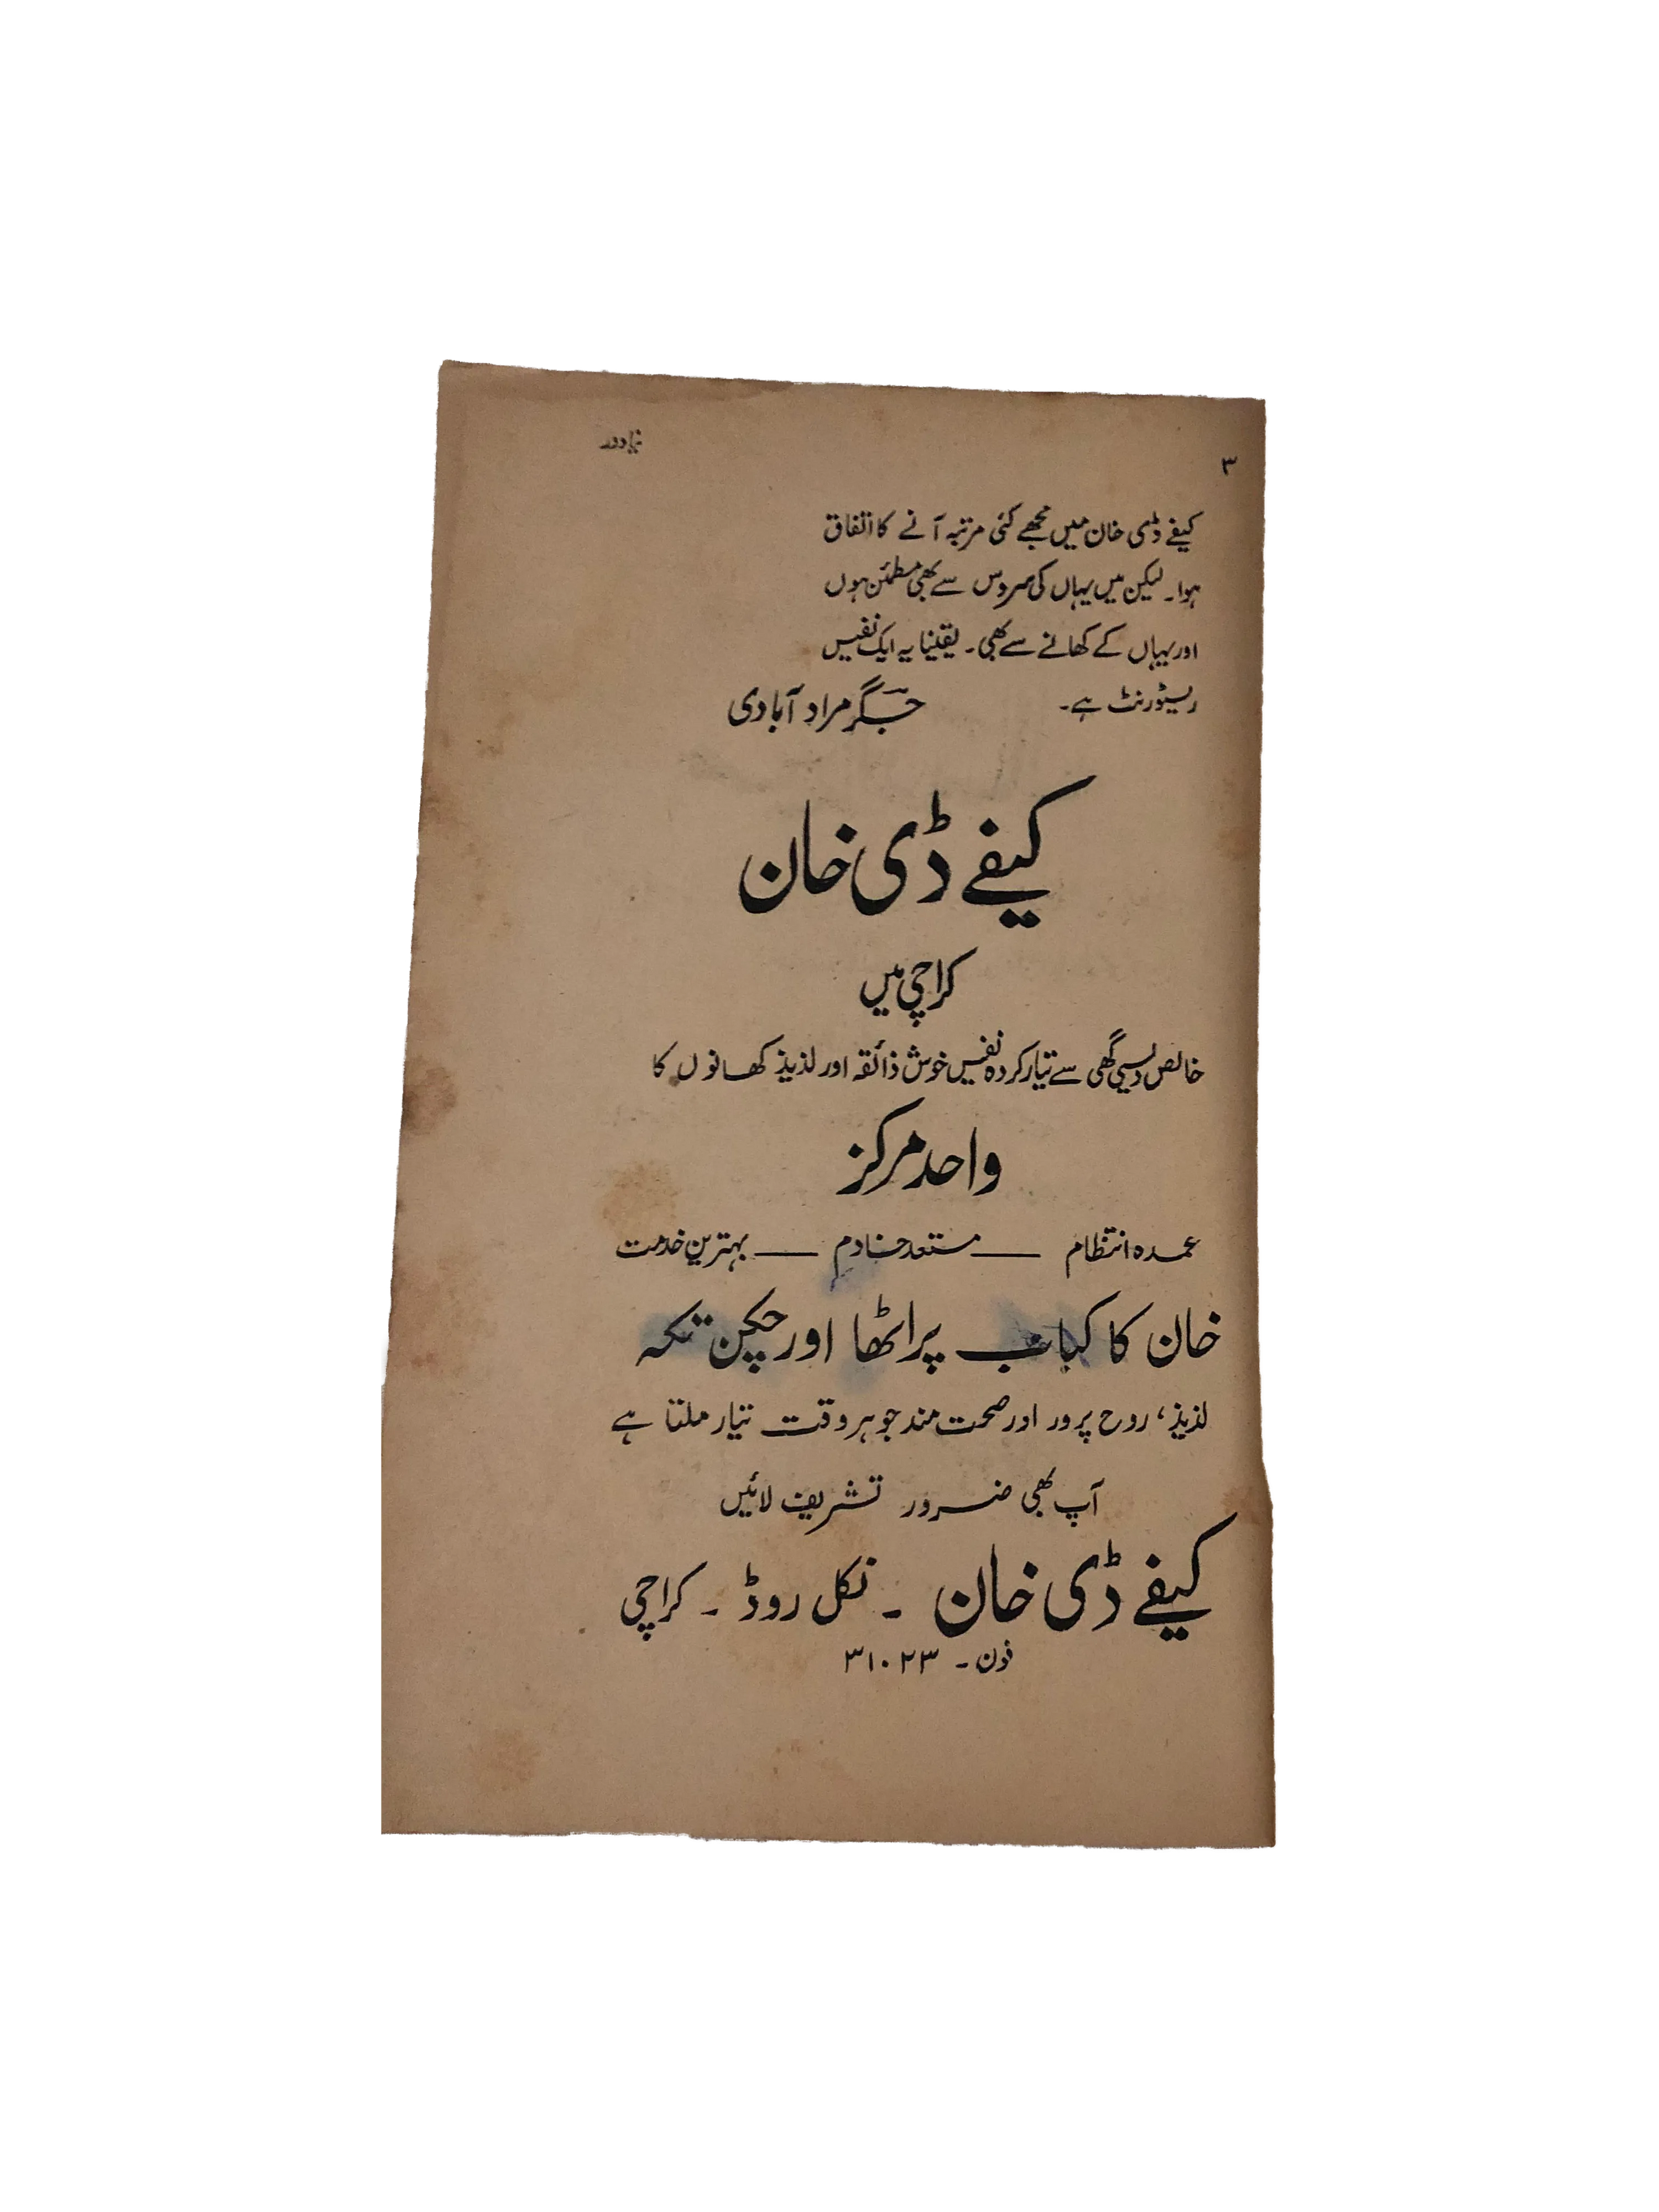 ۳
نیا دور
کیفے ڈی خان میں مجھے کئی مرتبہ آنے کا اتفاق
ہوا۔ لیکن میں یہاں کی سروس سے بھی مطمئن ہوں
اور یہاں کے کھانے سے بھی۔ یقینا یہ ایک نفیس
ریسٹورنٹ ہے۔ جگر مراد آبادی
کیفے ڈی خان
کراچی میں
خالص دیسی گھی سے تیار کردہ نفیس خوش ذائقہ اور لذیذ کھانوں کا
واحد مرکز
عمدہ انتظام — مستعد خادم — بہترین خدمت
خان کا کباب پراٹھا اور چکن تکہ
لذیذ، روح پرور اور صحت مند جو ہر وقت تیار ملتا ہے
آپ بھی ضرور تشریف لائیں
کیفے ڈی خان ۔ نکل روڈ ۔ کراچی
فون ۔ ۳۱۰۲۳